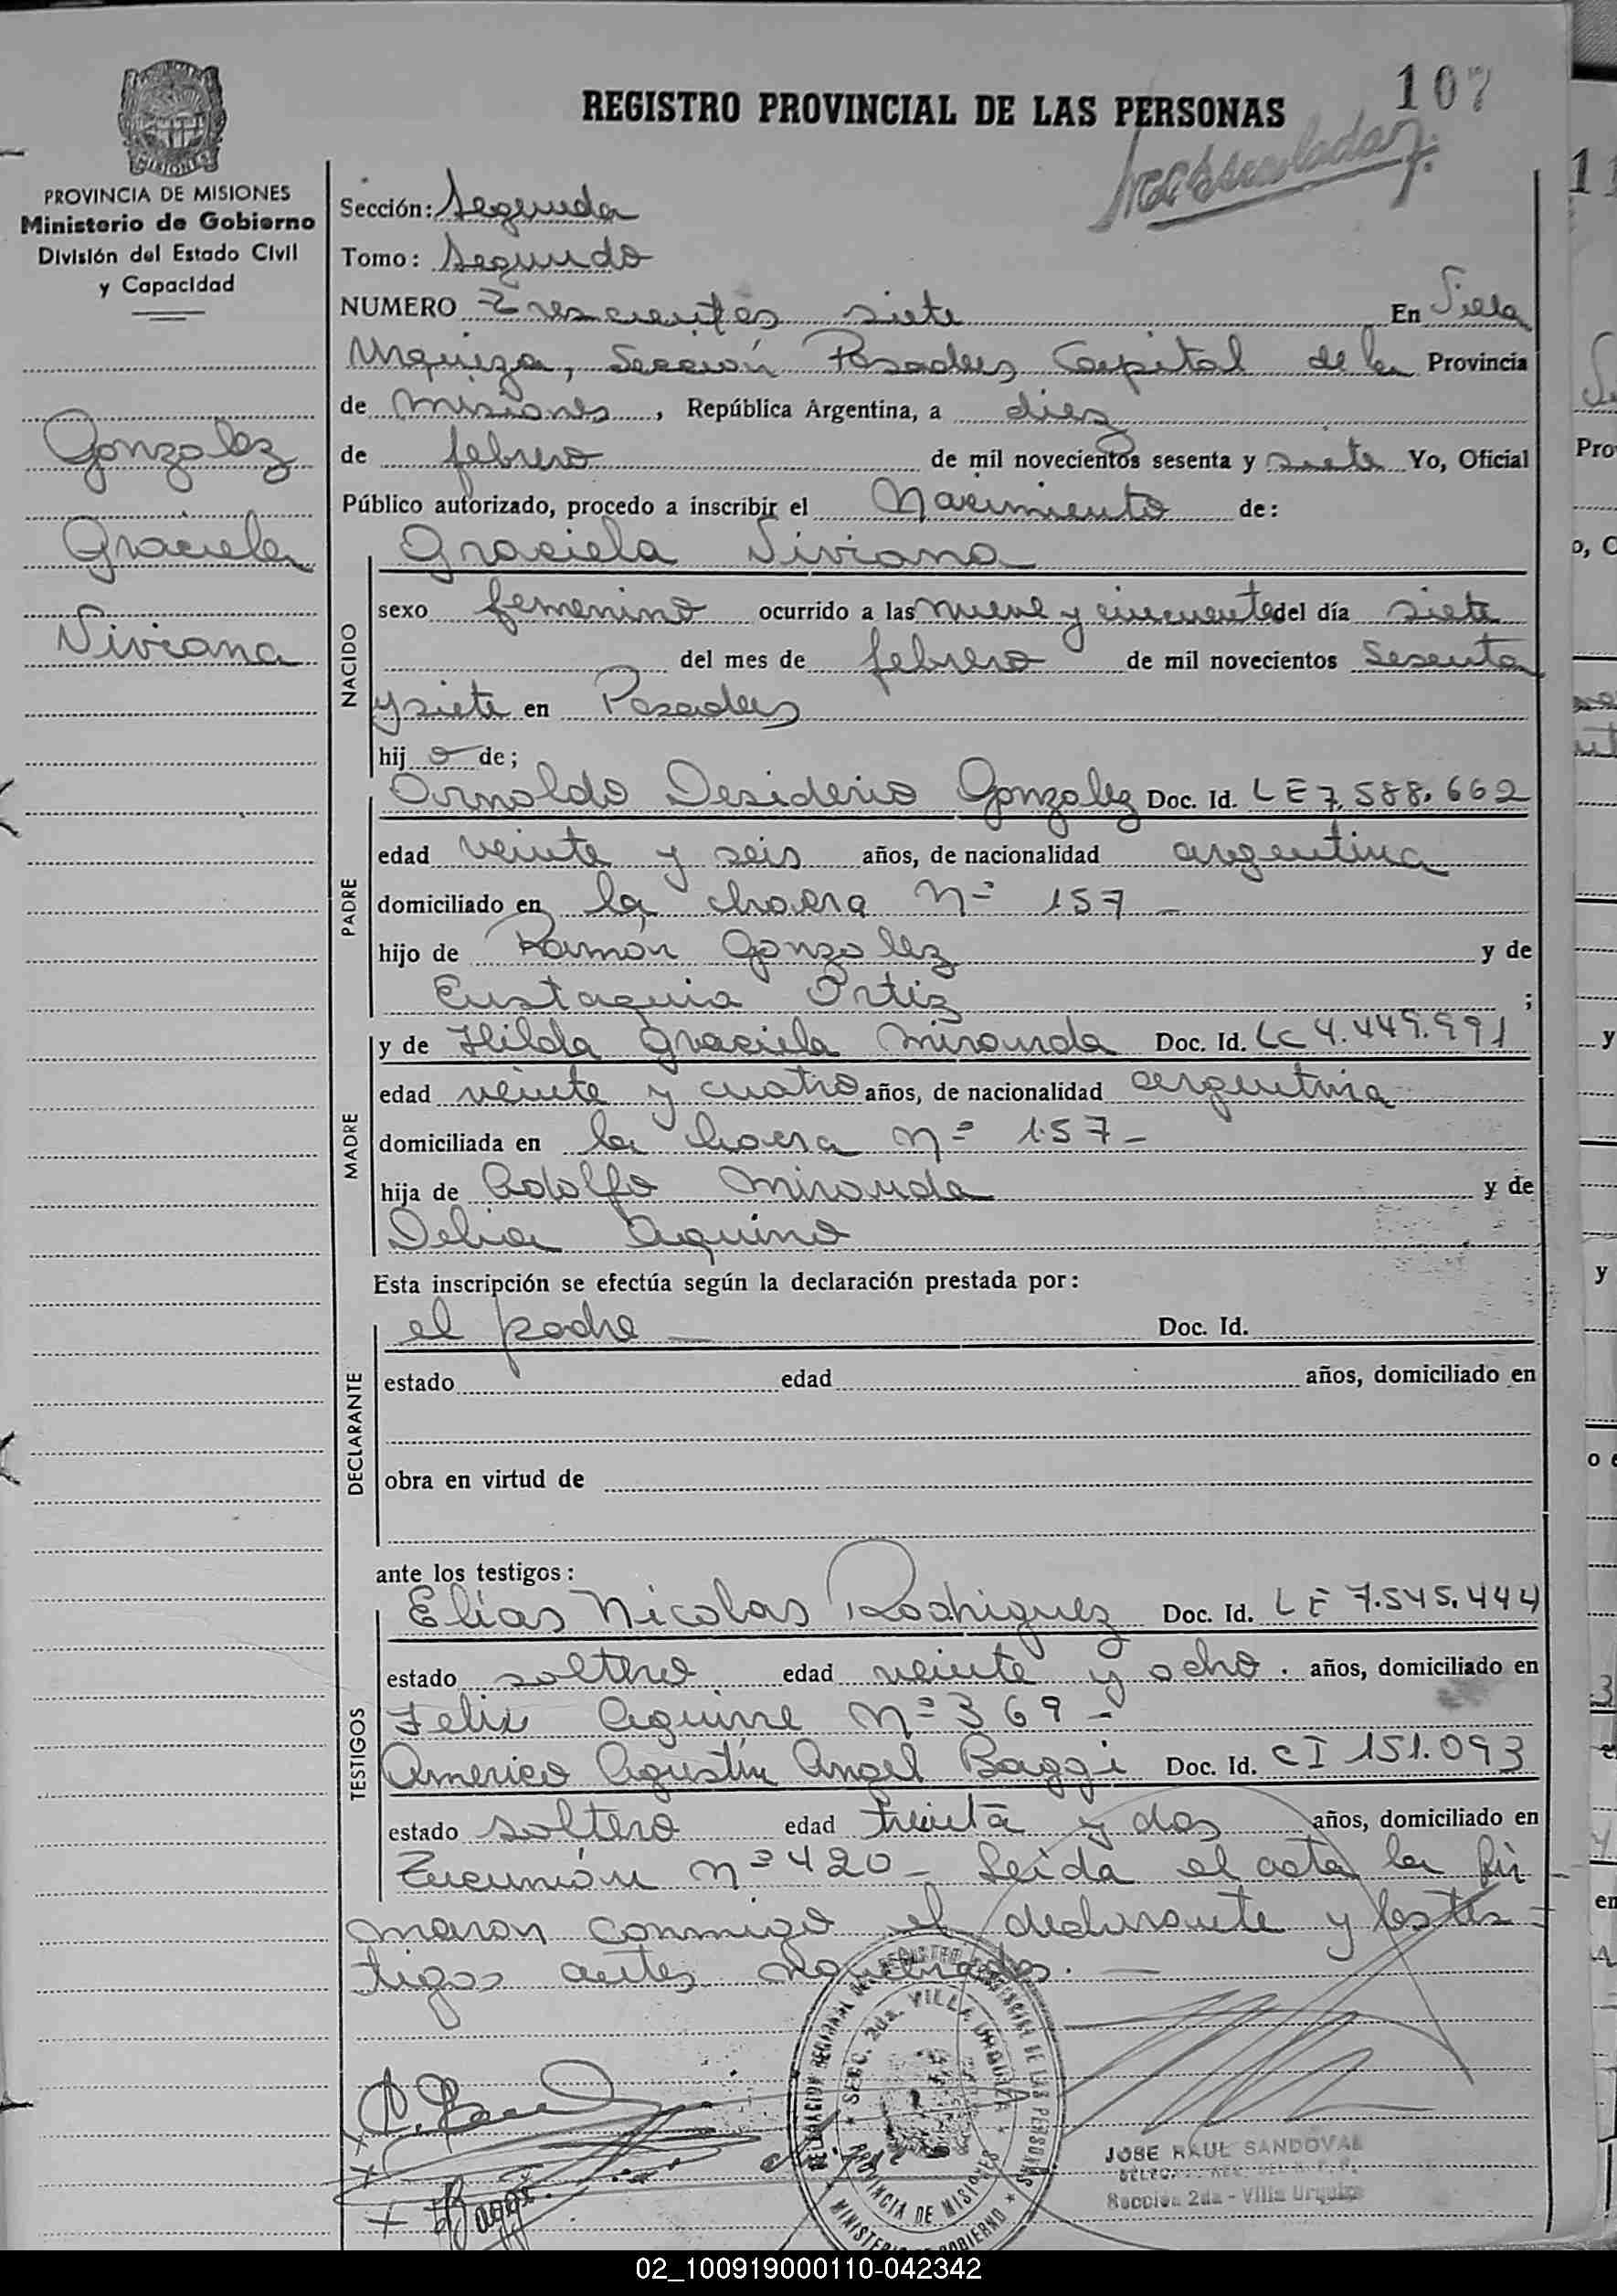 107
REGISTRO PROVINCIAL DE LAS PERSONAS
MISIONES
PROVINCIA DE MISIONES
Ministerio de Gobierno
División del Estado Civil
y Capacidad
Gonzalez
Graciela
Viviana
Sección: Segunda
Tomo: Segundo
NUMERO Trescientos siete En Villa
Urquiza, Sección Posadas Capital de la Provincia
de Misiones, República Argentina, a diez
de febrero de mil novecientos sesenta y siete Yo, Oficial
Público autorizado, procedo a inscribir el Nacimiento de:
Graciela Viviana
NACIDO
sexo femenino ocurrido a las nueve y cincuenta del día siete
del mes de febrero de mil novecientos sesenta
y siete en Posadas
hij a de;
PADRE
Arnoldo Desiderio Gonzalez Doc. Id. LE 7.588.662
edad veinte y seis años, de nacionalidad argentina
domiciliado en la chacra Nº 157 -
hijo de Ramón Gonzalez y de
Eustaquia Ortiz ;
MADRE
y de Hilda Graciela Miranda Doc. Id. LC 4.449.991
edad veinte y cuatro años, de nacionalidad argentina
domiciliada en la chacra nº 157 -
hija de Adolfo Miranda y de
Delia Aquino
Esta inscripción se efectúa según la declaración prestada por:
DECLARANTE
el padre — Doc. Id.
estado edad años, domiciliado en
obra en virtud de
ante los testigos:
TESTIGOS
Elías Nicolas Rodriguez Doc. Id. LE 7.545.444
estado soltero edad veinte y ocho. años, domiciliado en
Felix Aguirre Nº 369 -
Americo Agustín Angel Baggi Doc. Id. CI 151.093
estado soltero edad treinta y dos años, domiciliado en
nº 420 - Leida el acta la fir
maron conmigo el declarante y los tes-
tigos antes nombrados. —
DELEGACION REGIONAL DEL REGISTRO PROVINCIAL DE LAS PERSONAS
SECC. 2da. VILLA URQUIZA
PROVINCIA DE MISIONES
MINISTERIO DE GOBIERNO
JOSE RAUL SANDOVAL
Sección 2da - Villa Urquiza
02_100919000110-042342